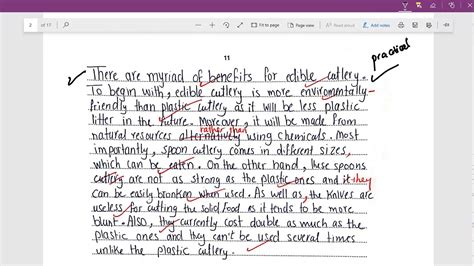 2 of 17
Fit to page
Page view
Read aloud
Add notes
11
practical
There are myriad of benefits for edible cutlery.
To begin with, edible cutlery is more environmentally-
friendly than plastic cutlery as it will be less plastic
litter in the future. Moreover, it will be made from
rather than
natural resources alternatively using chemicals. Most
importantly, spoon cutlery comes in different sizes,
which can be eaten. On the other hand, these spoons
cutlery are not as strong as the plastic ones and it they
can be easily bronken when used. As well as, the knives are
useless for cutting the solid food as it tends to be more
blunt. Also, they currently cost double as much as the
plastic ones and they can't be used several times
unlike the plastic cutlery.